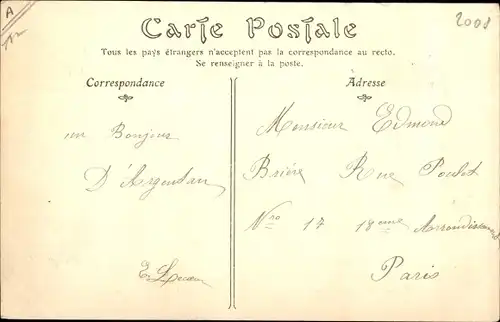 A
2008
Carte Postale
Tous les pays étrangers n'acceptent pas la correspondance au recto.
Se renseigner à la poste.
Correspondance
Adresse
un Bonjour
D'Argentan
Monsieur Edmond
Brière Rue Poulet
Nro 17 18eme Arrondissement
Paris